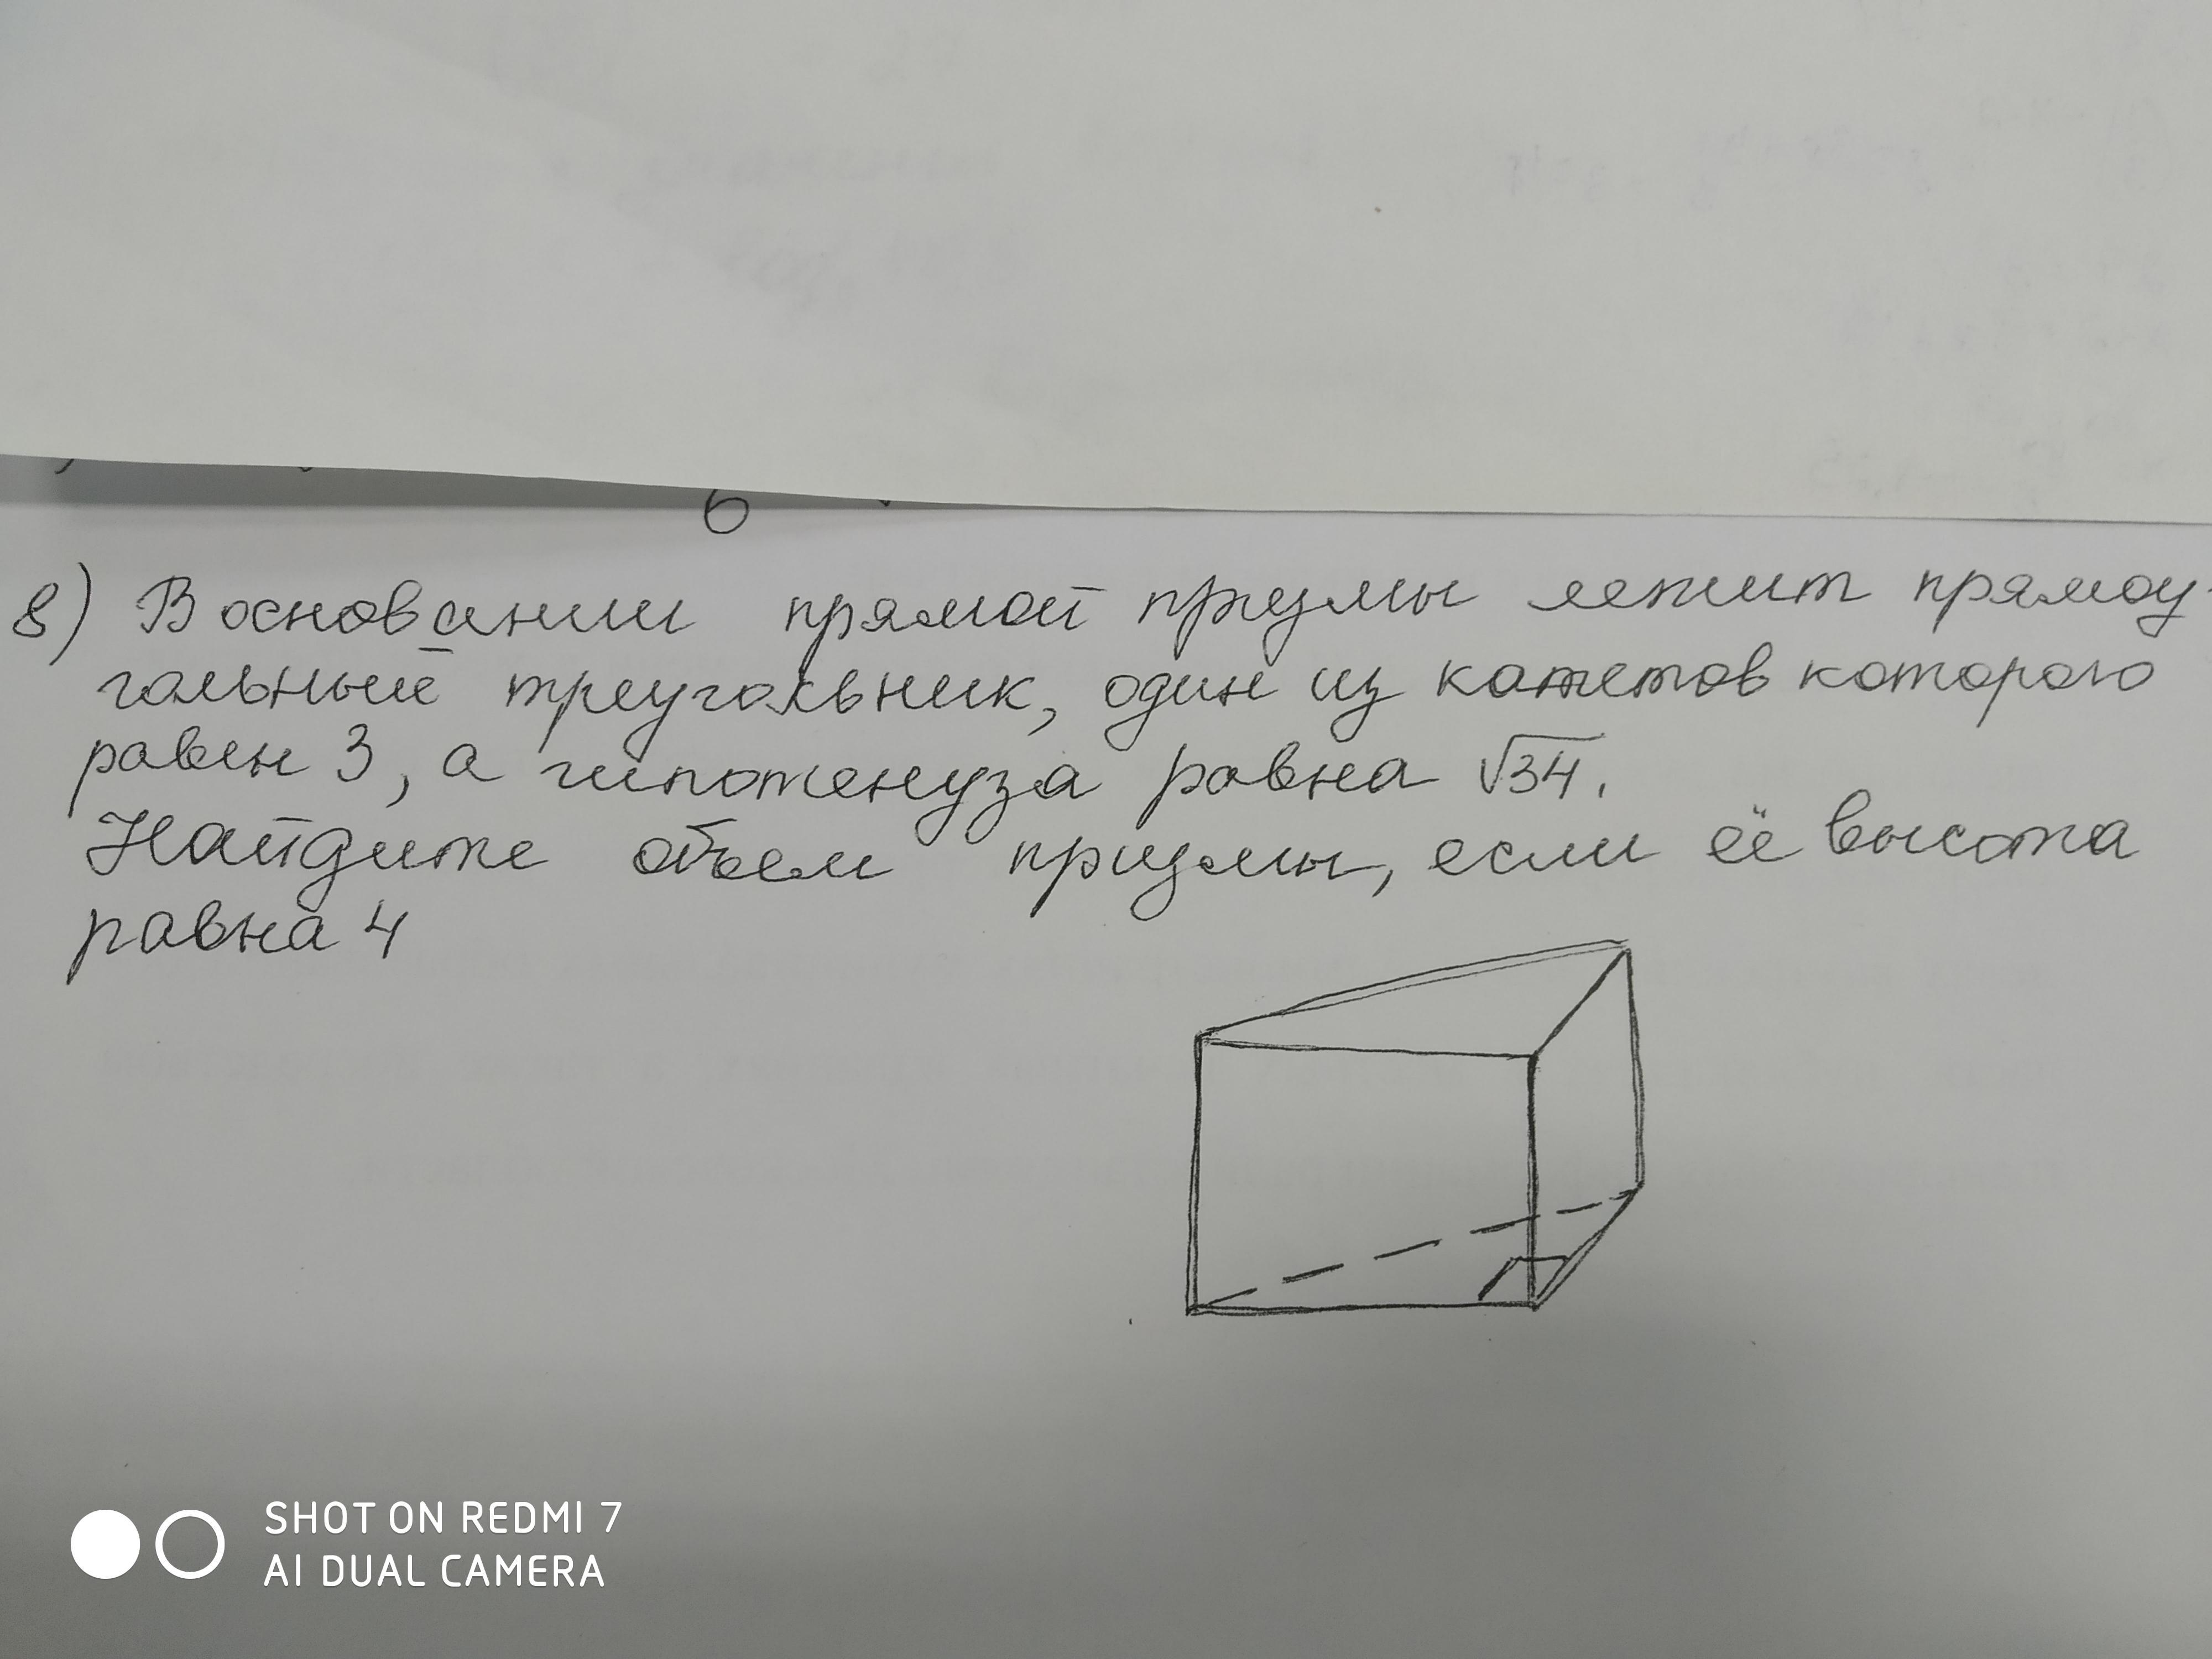 6
8) В основании прямой призмы лежит прямоу-
гольный треугольник, один из катетов которого
равен 3, а гипотенуза равна √34.
Найдите объем призмы, если её высота
равна 4
SHOT ON REDMI 7
AI DUAL CAMERA